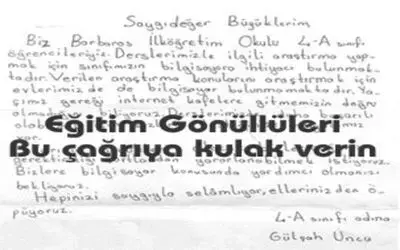 Saygıdeğer Büyüklerim
Biz Barbaros İlköğretim Okulu 4-A sınıfı
öğrencileriyiz. Derslerimizle ilgili araştırma yap-
mak için sınıfımızın bilgisayara ihtiyacı bulunmak-
tadır. Verilen araştırma konularını araştırmak için
evlerimizde de bilgisayar bulunmamaktadır. Ya-
şımız gereği internet kafelere gitmemizin doğru
Eğitim Gönüllüleri
Bu çağrıya kulak verin
yararlanabilmek istiyoruz.
Bizlere bilgisayar konusunda yardımcı olmanızı
bekliyoruz.
Hepinizi saygıyla selamlıyor, ellerinizden ö-
püyoruz.
4-A sınıfı adına
Gülşah Uncu